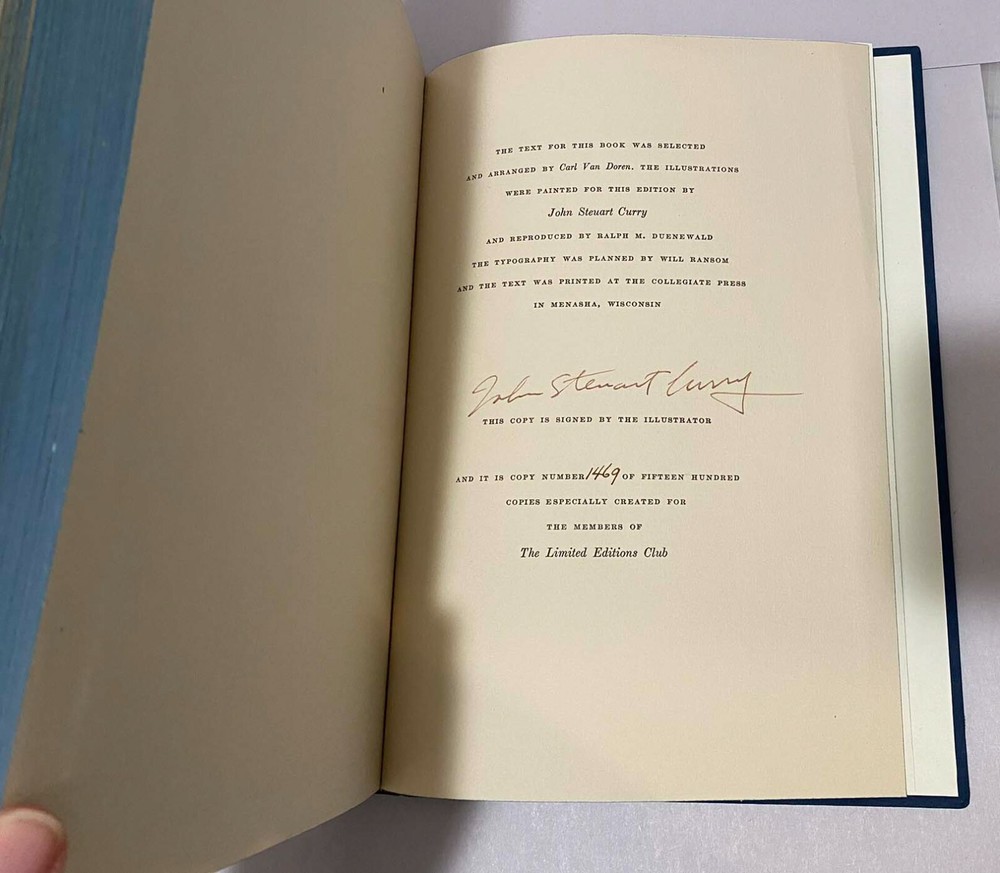 THE TEXT FOR THIS BOOK WAS SELECTED
AND ARRANGED BY Carl Van Doren. THE ILLUSTRATIONS
WERE PAINTED FOR THIS EDITION BY
John Steuart Curry
AND REPRODUCED BY RALPH M. DUENEWALD
THE TYPOGRAPHY WAS PLANNED BY WILL RANSOM
AND THE TEXT WAS PRINTED AT THE COLLEGIATE PRESS
IN MENASHA, WISCONSIN
John Steuart Curry
THIS COPY IS SIGNED BY THE ILLUSTRATOR
AND IT IS COPY NUMBER 1469 OF FIFTEEN HUNDRED
COPIES ESPECIALLY CREATED FOR
THE MEMBERS OF
The Limited Editions Club